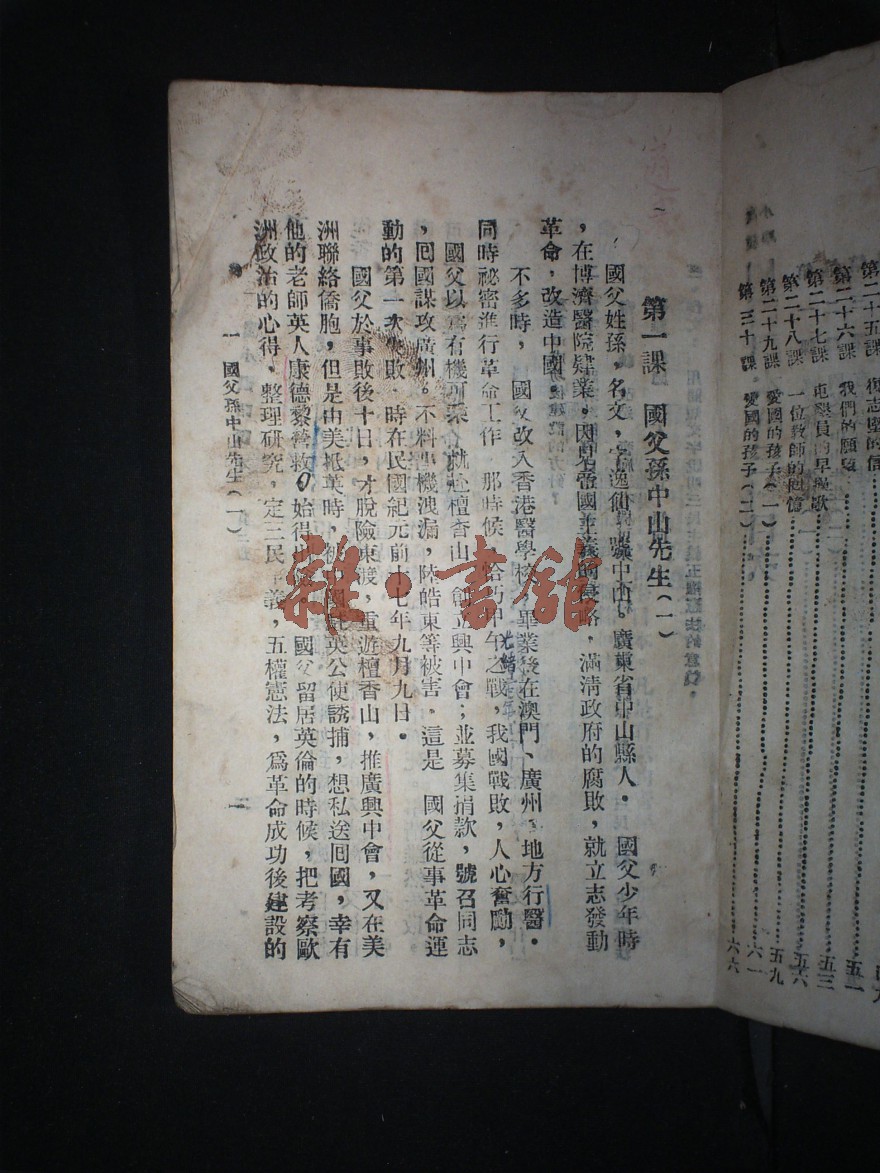 第二十五課
第二十六課 我們的願望 五一
第二十七課 屯墾員的早操歌 五三
第二十八課 一位教師的回憶 五六
第二十九課 愛國的孩子(一) 五九
第三十課 愛國的孩子(二) 六一
六六
第一課 國父孫中山先生(一)
國父姓孫,名文,字逸仙,號中山。廣東省中山縣人。 國父少年時
,在博濟醫院肄業,因帝國主義的侵略,滿清政府的腐敗,就立志發動
革命,改造中國。
不多時, 國父改入香港醫學校,畢業後在澳門、廣州、地方行醫。
同時祕密進行革命工作。那時候,恰巧甲午之戰,我國戰敗,人心奮勵,
光緒
國父以爲有機可乘,就赴檀香山,創立興中會;並募集捐款,號召同志
,回國謀攻廣州。不料事機洩漏,陸皓東等被害。這是 國父從事革命運
動的第一次失敗。時在民國紀元前十七年九月九日。
國父於事敗後十日,才脫險東渡,重遊檀香山,推廣興中會,又在美
洲聯絡僑胞,但是由美抵英時,被中國駐英公使誘捕,想私送回國,幸有
他的老師英人康德黎營救,始得出險。 國父留居英倫的時候,把考察歐
洲政治的心得,整理研究,定三民主義,五權憲法,爲革命成功後建設的
一 國父孫中山先生(一)
一
雜·書館